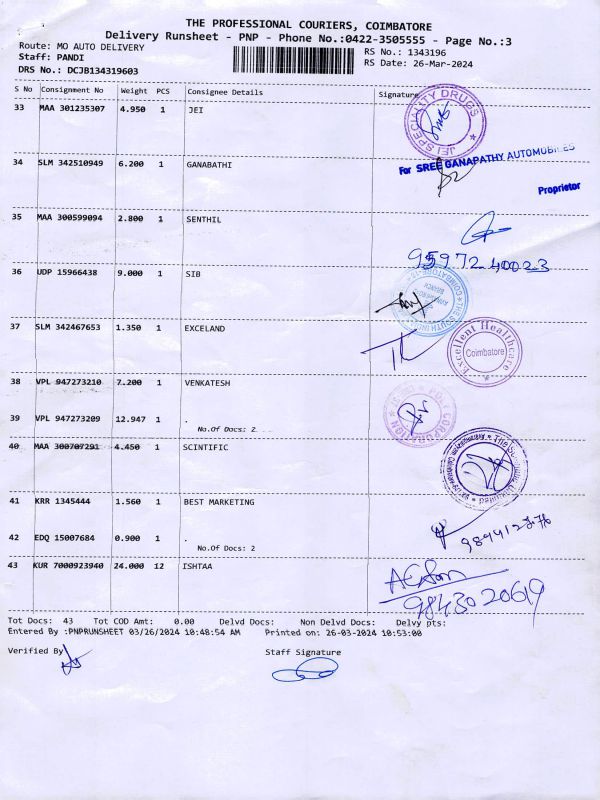 THE PROFESSIONAL COURIERS, COIMBATORE
Delivery Runsheet - PNP - Phone No.:0422-3505555 - Page No.:3
Route: MO AUTO DELIVERY
RS No.: 1343196
Staff: PANDI
RS Date: 26-Mar-2024
DRS No.: DCJB134319603
S No Consignment No Weight PCS Consignee Details Signature
33 MAA 301235307 4.950 1 JEI
JEI SPECIALITY DRUGS
34 SLM 342510949 6.200 1 GANABATHI
For SREE GANAPATHY AUTOMOBILES
Proprietor
35 MAA 300599094 2.800 1 SENTHIL
95972 40023
36 UDP 15966438 9.000 1 SIB
37 SLM 342467653 1.350 1 EXCELAND
Excellent Healthcare
Coimbatore
38 VPL 947273210 7.200 1 VENKATESH
39 VPL 947273209 12.947 1 .
No.Of Docs: 2
CORPORATION
40 MAA 300707291 4.450 1 SCINTIFIC
41 KRR 1345444 1.560 1 BEST MARKETING
42 EDQ 15007684 0.900 1 .
No.Of Docs: 2
43 KUR 7000923940 24.000 12 ISHTAA
9843020619
Tot Docs: 43 Tot COD Amt: 0.00 Delvd Docs: Non Delvd Docs: Delvy pts:
Entered By :PNPRUNSHEET 03/26/2024 10:48:54 AM Printed on: 26-03-2024 10:53:00
Verified By
Staff Signature